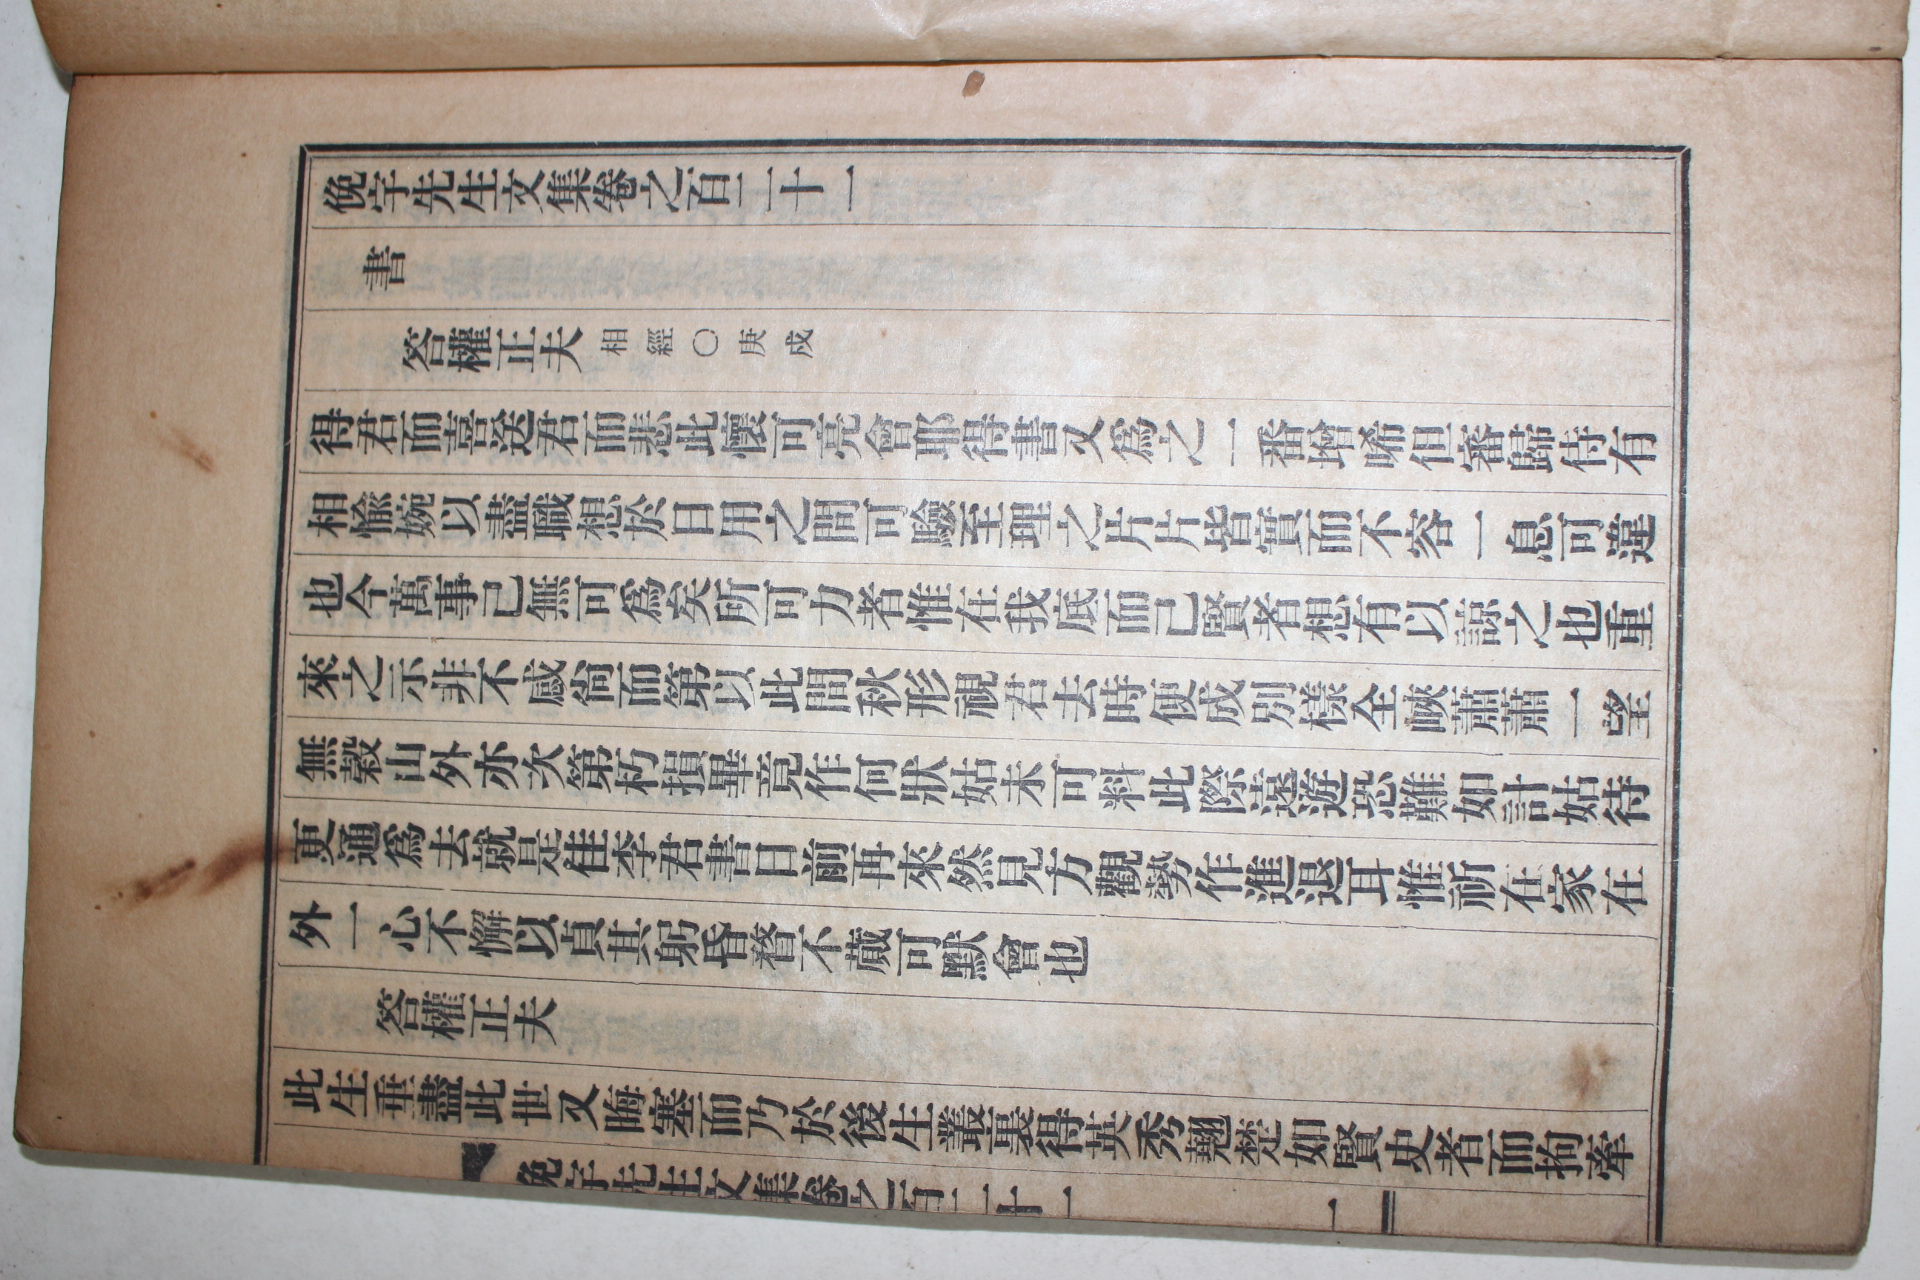 俛宇先生文集卷之百二十一
書
答權正夫 相經○庚戍
得君而喜送君而悲此懷可亮會耶得書又爲之一番增唏但審歸侍有
相愉婉以盡職想於日用之間可驗至理之片片皆實而不容一息可違
也今萬事已無可爲矣所可力者惟在我底而已賢者想有以諒之也重
來之示非不感尙而第以此間秋形視君去時便成別樣全峽蕭蕭一望
無糓山外亦次第朽損畢竟作何狀姑未可料此際遠遊恐難如計姑待
更通爲去就是佳李君書日前再來然見方觀勢作進退耳惟祈在家在
外一心不懈以貞其躬昏瞀不蕆可默會也
答權正夫
此生垂盡此世又晦塞而乃於後生叢裏得英秀翹楚如賢史者而拘牽
俛宇先生文集卷之百二十一
一